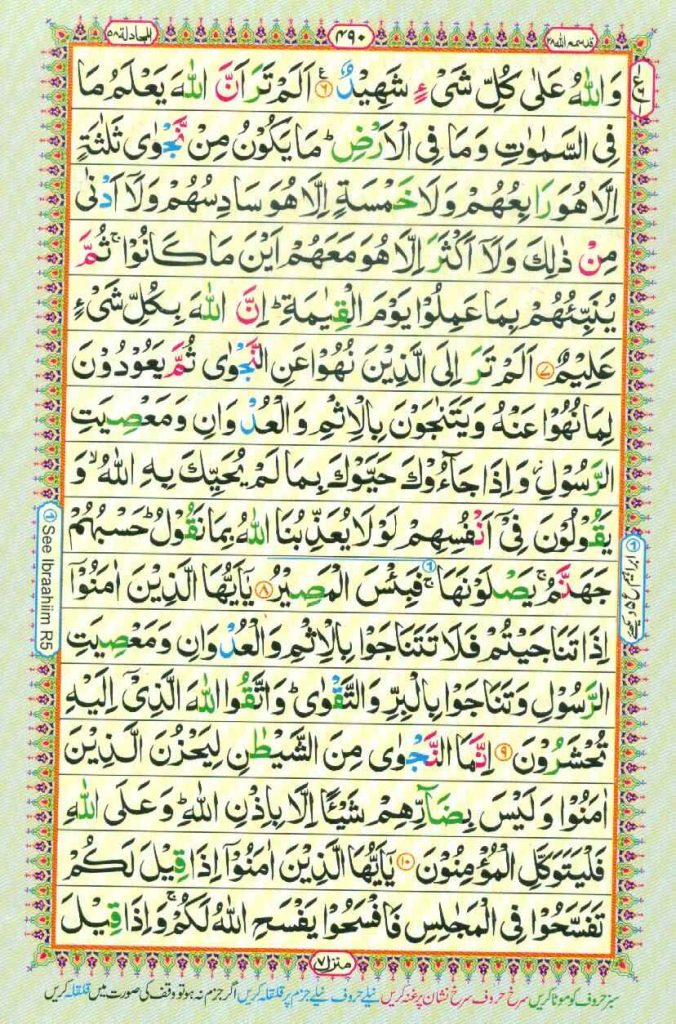 قد سمع الله ٢٨
٤٩٠
المجادلة ٥٨
وَاللّٰهُ عَلٰى كُلِّ شَىْءٍ شَهِيْدٌ ۝٦ اَلَمْ تَرَ اَنَّ اللّٰهَ يَعْلَمُ مَا
فِى السَّمٰوٰتِ وَمَا فِى الْاَرْضِ ؕ مَا يَكُوْنُ مِنْ نَّجْوٰى ثَلٰثَةٍ
اِلَّا هُوَ رَابِعُهُمْ وَلَا خَمْسَةٍ اِلَّا هُوَ سَادِسُهُمْ وَلَاۤ اَدْنٰى
مِنْ ذٰلِكَ وَلَاۤ اَكْثَرَ اِلَّا هُوَ مَعَهُمْ اَيْنَ مَا كَانُوْا ۚ ثُمَّ
يُنَبِّئُهُمْ بِمَا عَمِلُوْا يَوْمَ الْقِيٰمَةِ ؕ اِنَّ اللّٰهَ بِكُلِّ شَىْءٍ
عَلِيْمٌ ۝٧ اَلَمْ تَرَ اِلَى الَّذِيْنَ نُهُوْا عَنِ النَّجْوٰى ثُمَّ يَعُوْدُوْنَ
لِمَا نُهُوْا عَنْهُ وَيَتَنٰجَوْنَ بِالْاِثْمِ وَالْعُدْوَانِ وَمَعْصِيَتِ
الرَّسُوْلِ ؗ وَاِذَا جَآءُوْكَ حَيَّوْكَ بِمَا لَمْ يُحَيِّكَ بِهِ اللّٰهُ ۙ وَ
يَقُوْلُوْنَ فِىْۤ اَنْفُسِهِمْ لَوْلَا يُعَذِّبُنَا اللّٰهُ بِمَا نَقُوْلُ ؕ حَسْبُهُمْ
جَهَنَّمُ ۚ يَصْلَوْنَهَا ۚ فَبِئْسَ الْمَصِيْرُ ۝٨ يٰۤاَيُّهَا الَّذِيْنَ اٰمَنُوْۤا
اِذَا تَنَاجَيْتُمْ فَلَا تَتَنَاجَوْا بِالْاِثْمِ وَالْعُدْوَانِ وَمَعْصِيَتِ
الرَّسُوْلِ وَتَنَاجَوْا بِالْبِرِّ وَالتَّقْوٰى ؕ وَاتَّقُوا اللّٰهَ الَّذِىْۤ اِلَيْهِ
تُحْشَرُوْنَ ۝٩ اِنَّمَا النَّجْوٰى مِنَ الشَّيْطٰنِ لِيَحْزُنَ الَّذِيْنَ
اٰمَنُوْا وَلَيْسَ بِضَآرِّهِمْ شَيْـًٔا اِلَّا بِاِذْنِ اللّٰهِ ؕ وَعَلَى اللّٰهِ
فَلْيَتَوَكَّلِ الْمُؤْمِنُوْنَ ۝١٠ يٰۤاَيُّهَا الَّذِيْنَ اٰمَنُوْۤا اِذَا قِيْلَ لَكُمْ
تَفَسَّحُوْا فِى الْمَجٰلِسِ فَافْسَحُوْا يَفْسَحِ اللّٰهُ لَكُمْ ۚ وَاِذَا قِيْلَ
See Ibraahiim R5
منزل ٧
سبز حروف کو موٹا کریں سرخ حروف سرخ نشان پر غنہ کریں نیلے حروف نیلے جزم پر قلقلہ کریں اگر جزم نہ ہو تو وقف کی صورت میں قلقلہ کریں